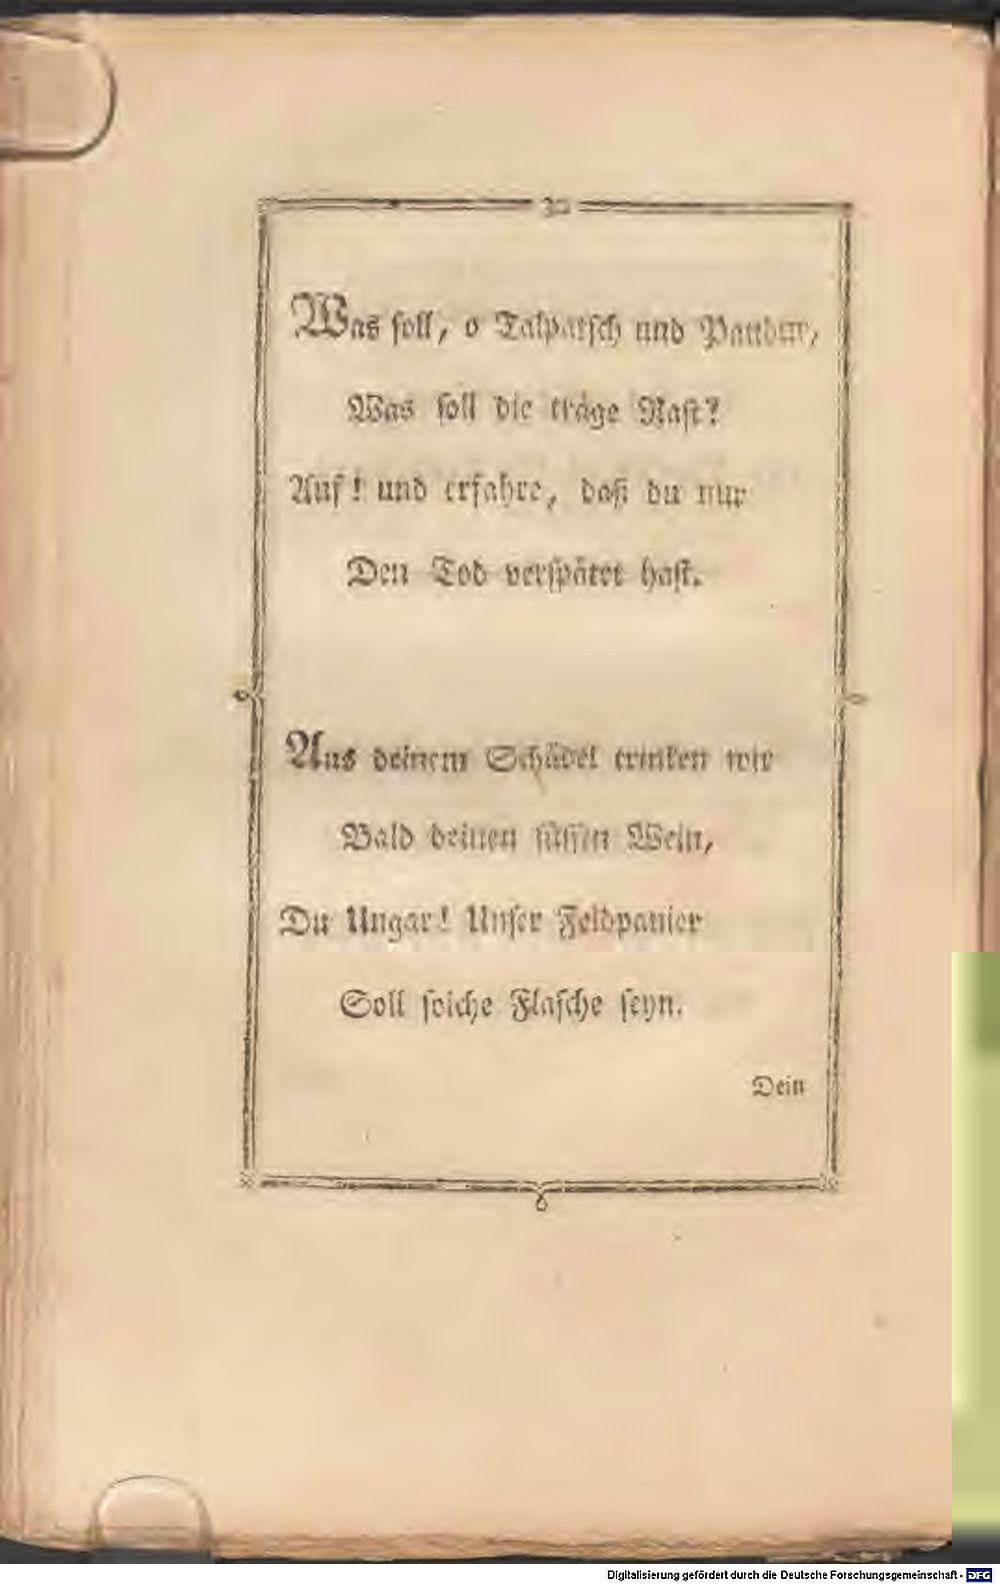 32
Was soll, o Talpatsch und Pandur,
Was soll die träge Rast?
Auf! und erfahre, daß du nur
Den Tod verspätet hast.
Aus deinem Schädel trinken wir
Bald deinen süssen Wein,
Du Ungar! Unser Feldpanier
Soll solche Flasche seyn.
Dein
Digitalisierung gefördert durch die Deutsche Forschungsgemeinschaft - DFG